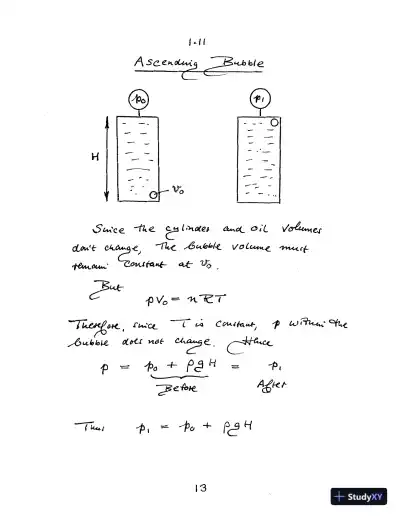 1-11
Ascending Bubble
p₀
p₁
H
V₀
Since the cylinder and oil volumes
don't change, the bubble volume must
remain constant at V₀.
But
pV₀ = nRT
Therefore, since T is constant, p within the
bubble does not change. Hence
p = p₀ + ρgH = p₁
Before
After
Thus p₁ = p₀ + ρgH
13
StudyXY